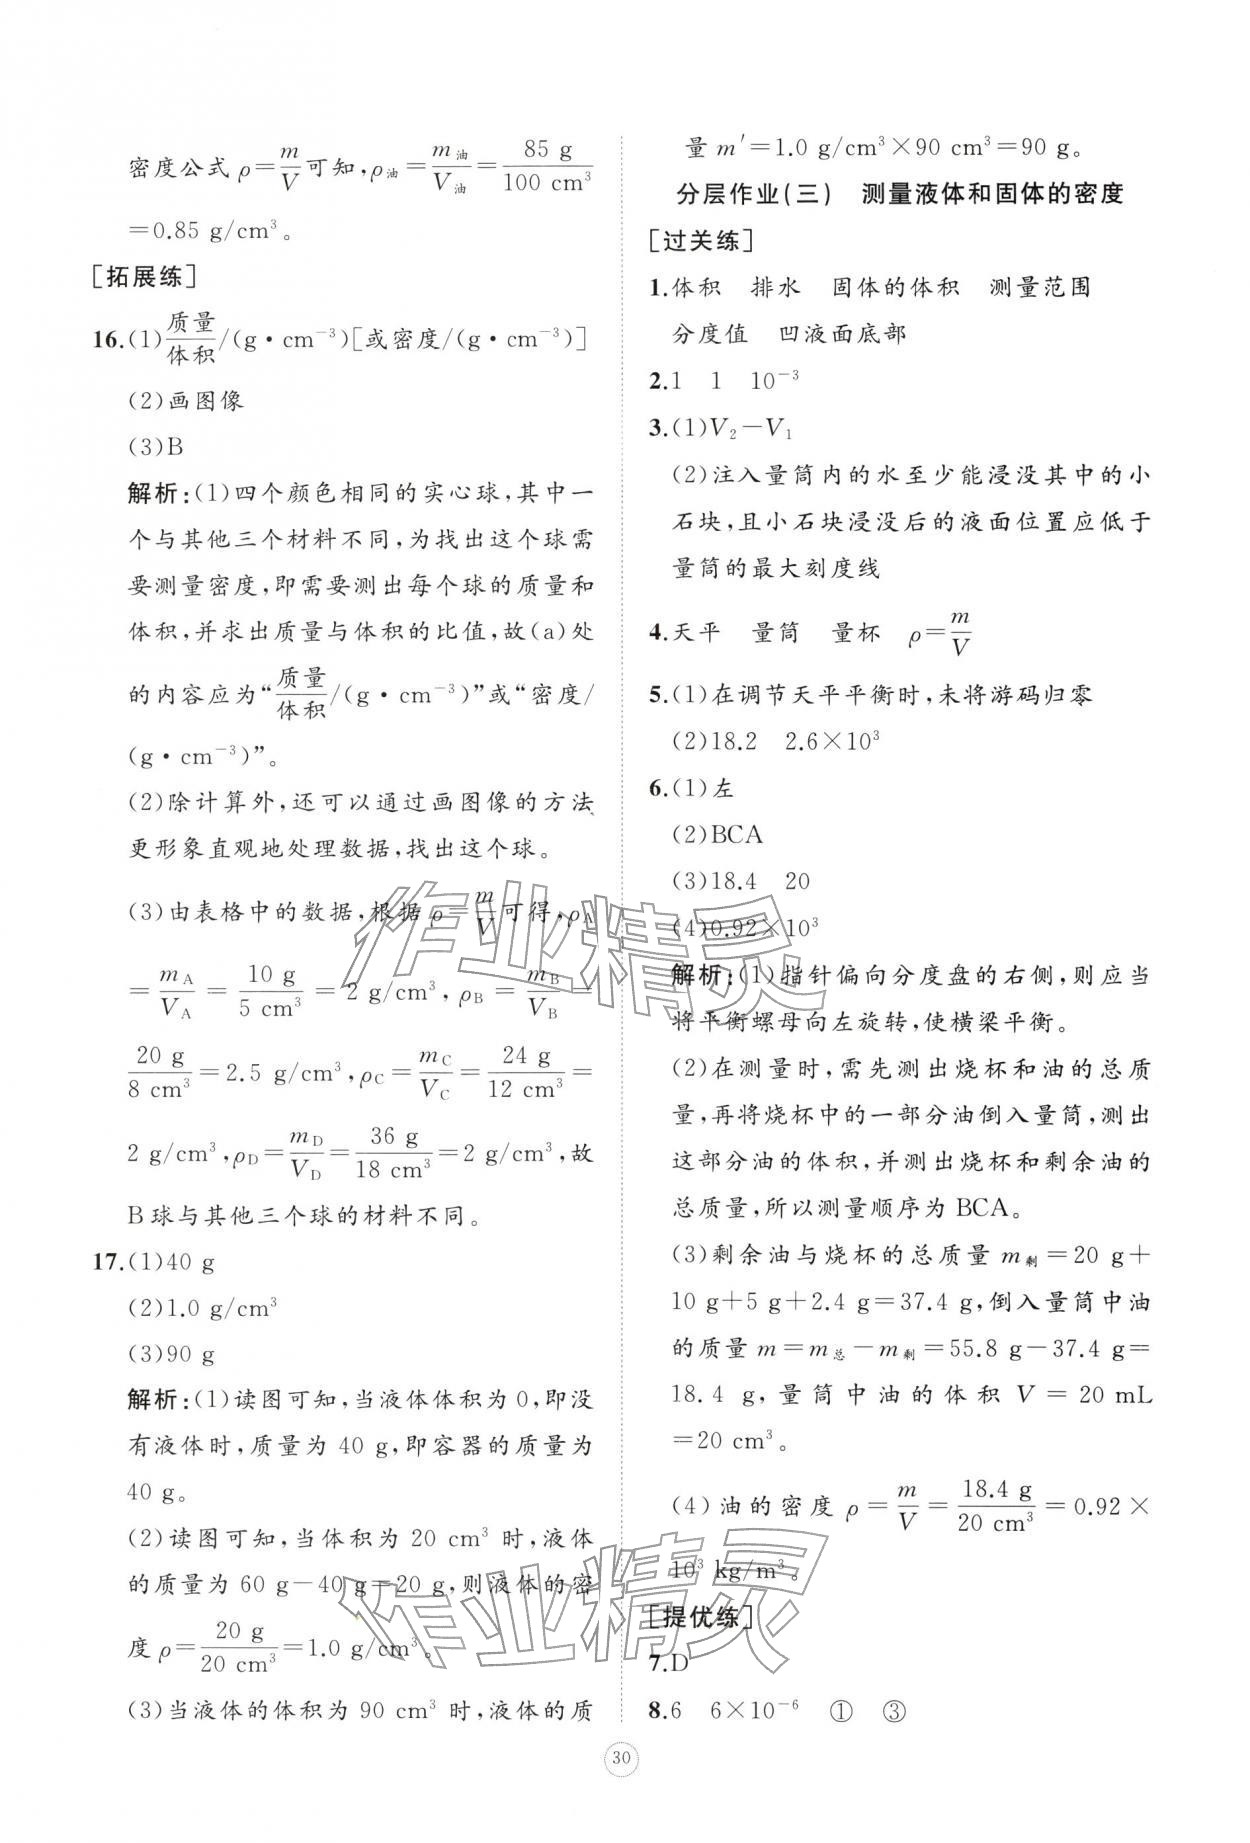 密度公式 ρ=m/V 可知,ρ油=m油/V油=85 g/100 cm³
=0.85 g/cm³。
[拓展练]
16.(1)质量/体积/(g·cm⁻³)[或密度/(g·cm⁻³)]
(2)画图像
(3)B
解析:(1)四个颜色相同的实心球,其中一
个与其他三个材料不同,为找出这个球需
要测量密度,即需要测出每个球的质量和
体积,并求出质量与体积的比值,故(a)处
的内容应为“质量/体积/(g·cm⁻³)”或“密度/
(g·cm⁻³)”。
(2)除计算外,还可以通过画图像的方法
更形象直观地处理数据,找出这个球。
(3)由表格中的数据,根据 ρ=m/V 可得,ρA
=mA/VA=10 g/5 cm³=2 g/cm³,ρB=mB/VB=
20 g/8 cm³=2.5 g/cm³,ρC=mC/VC=24 g/12 cm³=
2 g/cm³,ρD=mD/VD=36 g/18 cm³=2 g/cm³,故
B球与其他三个球的材料不同。
17.(1)40 g
(2)1.0 g/cm³
(3)90 g
解析:(1)读图可知,当液体体积为0,即没
有液体时,质量为 40 g,即容器的质量为
40 g。
(2)读图可知,当体积为 20 cm³ 时,液体
的质量为 60 g-40 g=20 g,则液体的密
度 ρ=20 g/20 cm³=1.0 g/cm³。
(3)当液体的体积为 90 cm³ 时,液体的质
量 m′=1.0 g/cm³×90 cm³=90 g。
分层作业(三) 测量液体和固体的密度
[过关练]
1.体积 排水 固体的体积 测量范围
分度值 凹液面底部
2.1 1 10⁻³
3.(1)V₂-V₁
(2)注入量筒内的水至少能浸没其中的小
石块,且小石块浸没后的液面位置应低于
量筒的最大刻度线
4.天平 量筒 量杯 ρ=m/V
5.(1)在调节天平平衡时,未将游码归零
(2)18.2 2.6×10³
6.(1)左
(2)BCA
(3)18.4 20
(4)0.92×10³
解析:(1)指针偏向分度盘的右侧,则应当
将平衡螺母向左旋转,使横梁平衡。
(2)在测量时,需先测出烧杯和油的总质
量,再将烧杯中的一部分油倒入量筒,测出
这部分油的体积,并测出烧杯和剩余油的
总质量,所以测量顺序为 BCA。
(3)剩余油与烧杯的总质量 m剩=20 g+
10 g+5 g+2.4 g=37.4 g,倒入量筒中油
的质量 m=m总-m剩=55.8 g-37.4 g=
18.4 g,量筒中油的体积 V=20 mL
=20 cm³。
(4)油的密度 ρ=m/V=18.4 g/20 cm³=0.92×
10³ kg/m³。
[提优练]
7.D
8.6 6×10⁻⁶ ① ③
30
作业精灵
作业精灵